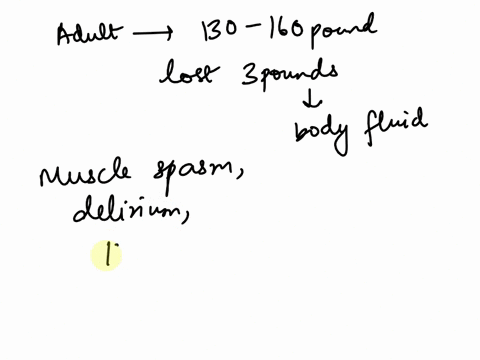 Adult → 130 - 160 pound
lost 3 pounds
↓
body fluid
Muscle spasm,
delirium,